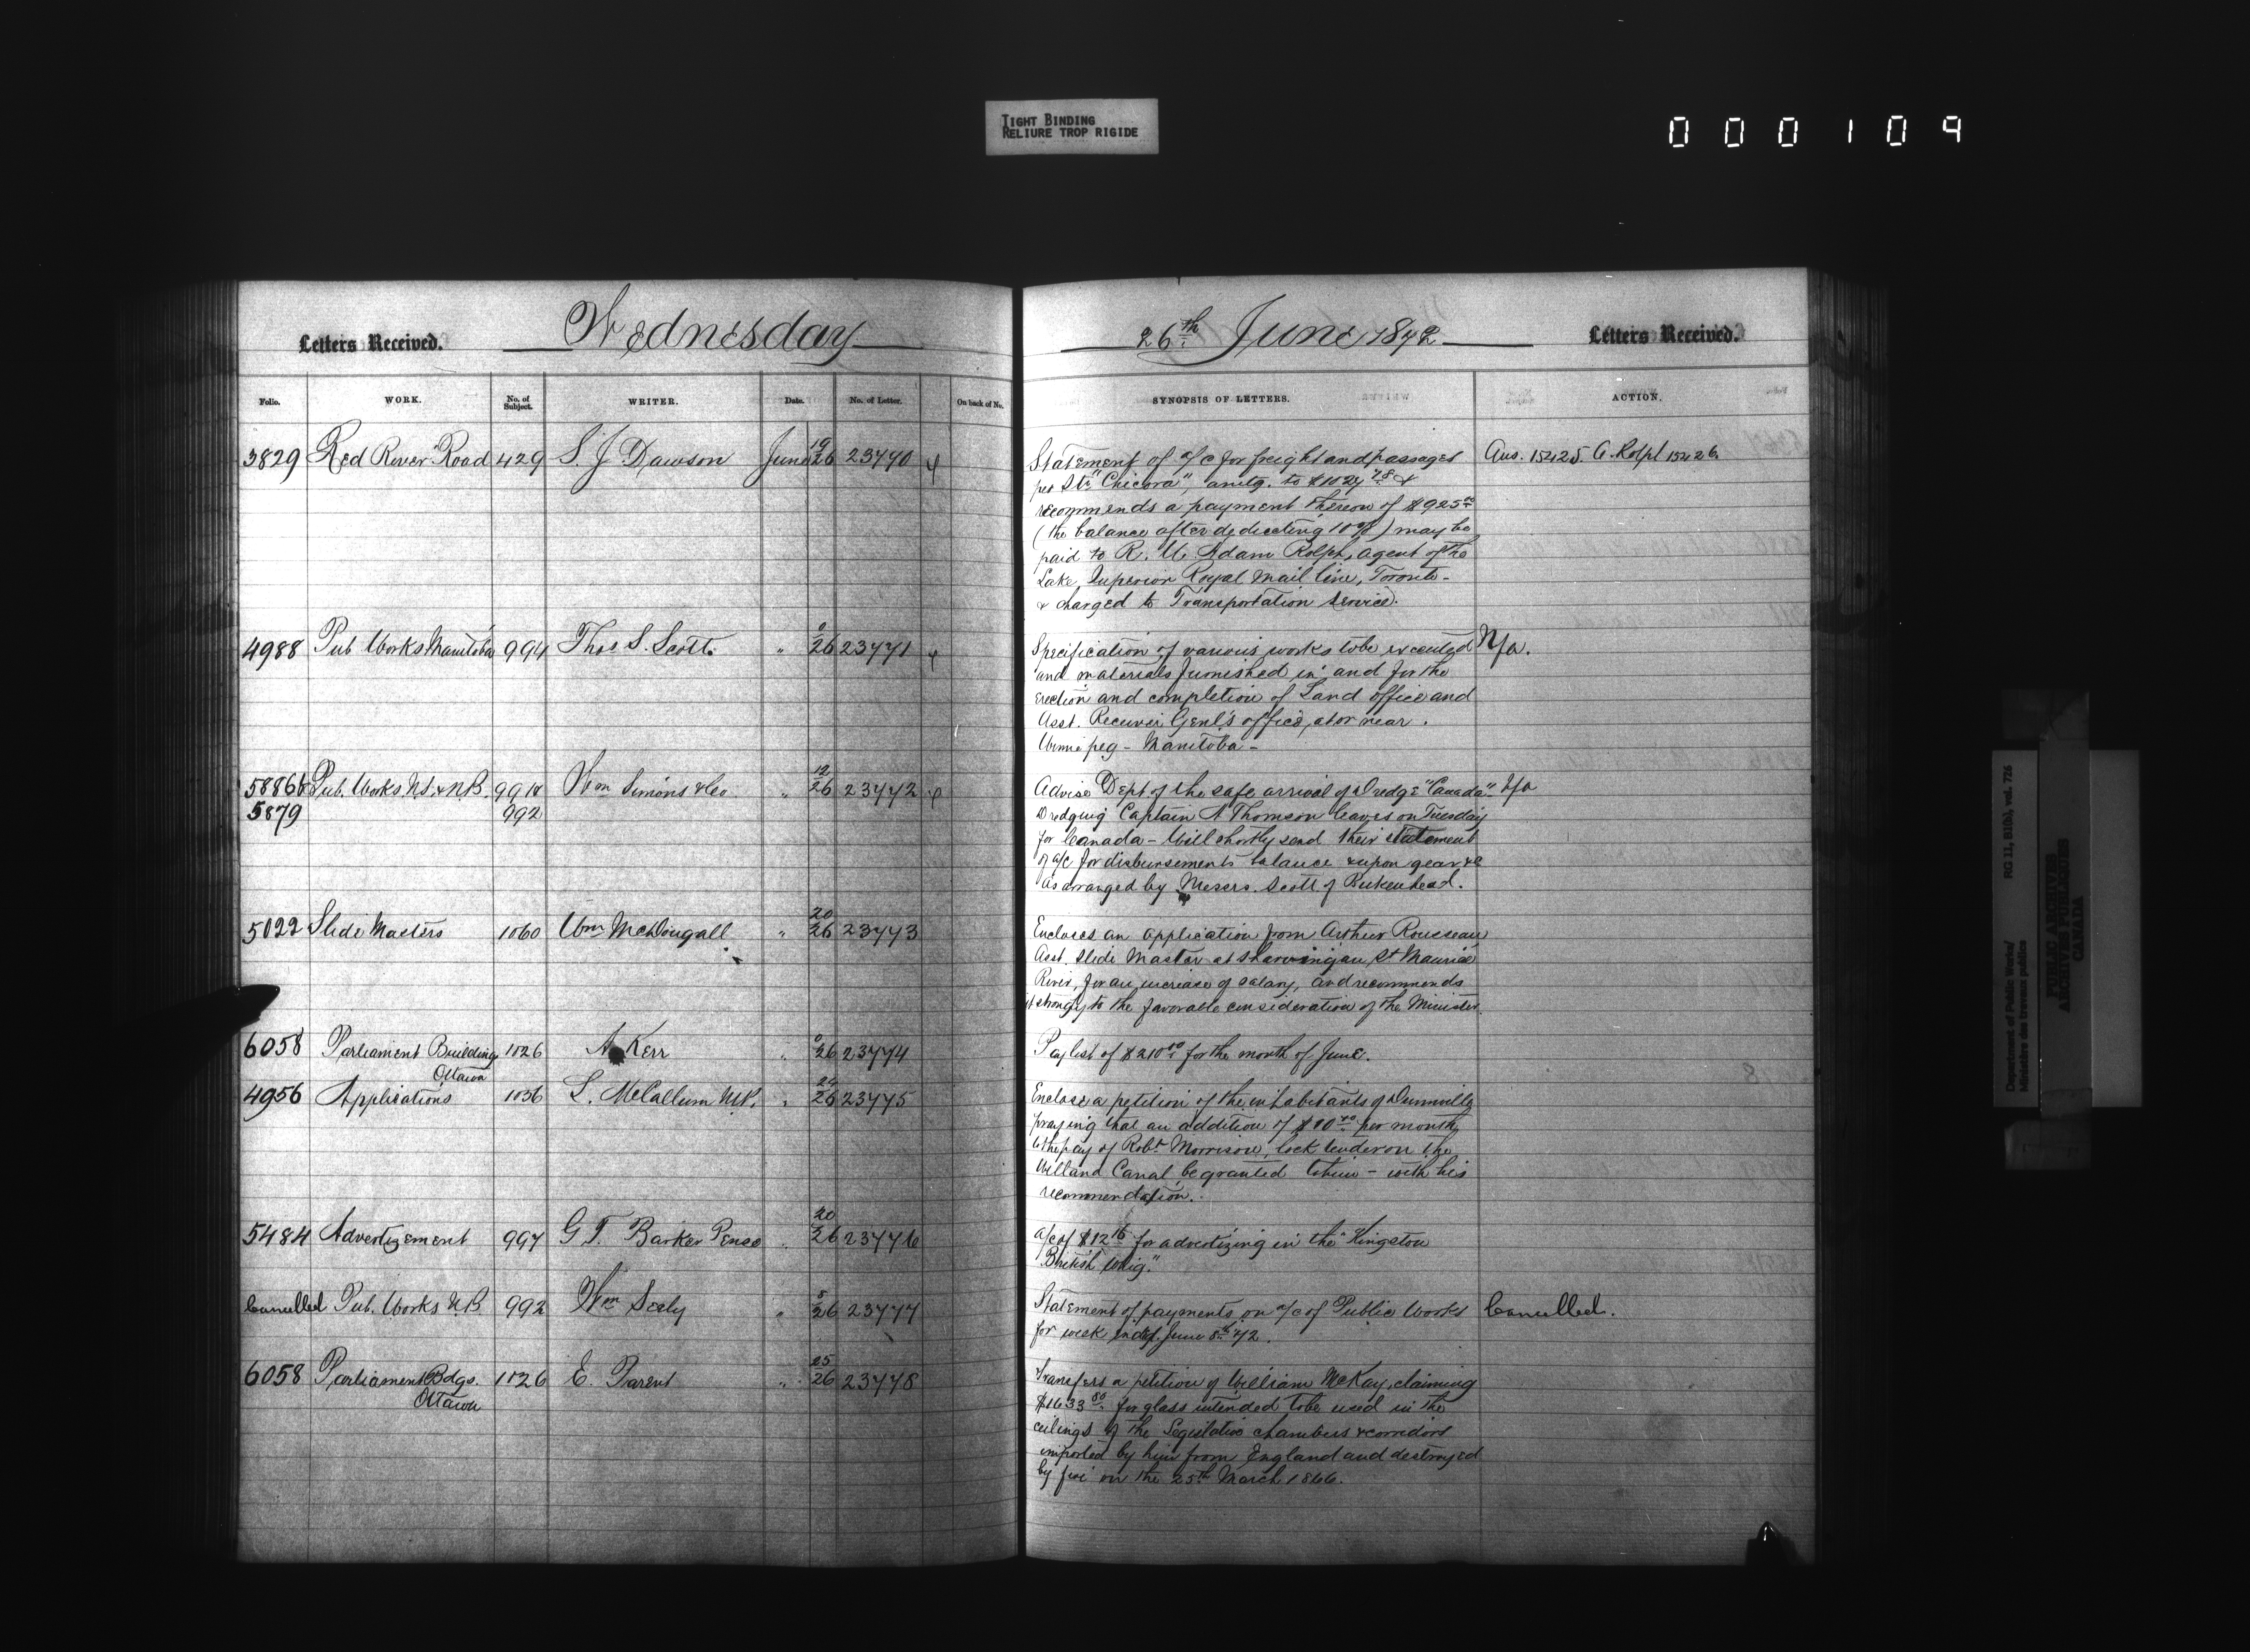 TIGHT BINDING
RELIURE TROP RIGIDE
000109
Letters Received.
Wednesday
Folio. WORK. No. of Subject. WRITER. Date. No. of Letter. On back of No.
3829 Red River Road 429 S. J Dawson June 19/26 23770
4988 Pub Works Manitoba 994 Thos S. Scott " 0/26 23771
5886 & Pub. Works N.S. & N.B. 991 & Wm Simons & Co " 12/26 23772
5879 992
5022 Slide Masters 1060 Wm McDougall " 20/26 23773
6058 Parliament Building 1026 A Kerr " 0/26 23774
Ottawa
4956 Applications 1036 L. McCallum M.P. " 24/26 23775
5484 Advertizement 997 G T. Barker Pense " 20/26 23776
Cancelled Pub. Works N.B 992 Wm Seely " 8/26 23777
6058 Parliament Bdgs. 1026 E. Parent " 25/26 23778
Ottawa
26th June 1872
Letters Received.
SYNOPSIS OF LETTERS. ACTION.
Statement of a/c for freight and passages Ans. 15425. A. Rolph 15426
per Str "Chicora", amtg. to $1027.78 &
recommends a payment thereon of $925.00
(the balance after dedicating 10%) may be
paid to R. U. Adam Rolph, agent of the
Lake Superior Royal Mail line, Toronto -
& charged to Transportation Service.
Specification of various works to be executed N/a.
and materials furnished in and for the
erection and completion of Land office and
Asst. Receiver Genl's office, at or near
Winnipeg - Manitoba -
Advise Dept of the safe arrival of Dredge "Canada" - N/a
Dredging Captain A Thomson leaves on Tuesday
for Canada - Will shortly send their statement
of a/c for disbursements balance & upon gear &c
as arranged by Messrs. Scott of Birkenhead.
Encloses an application from Arthur Rousseau
Asst. Slide Master at Shawinigan, St Maurice
River, for an increase of salary, and recommends
it strongly to the favorable consideration of the Minister.
Paylist of $210.00 for the month of June.
Enclose a petition of the inhabitants of Dunnville
praying that an addition of $10.00 per month
to the pay of Robt Morrison, lock tender on the
Welland Canal, be granted to him - with his
recommendation.
a/c of $12.16 for advertizing in the "Kingston
British Whig."
Statement of payments on a/c of Public Works Cancelled.
for week endg. June 8th 72.
Transfers a petition of William McKay, claiming
$1633.80 for glass intended to be used in the
ceilings of the Legislative chambers & corridors
imported by him from England and destroyed
by fire on the 25th March 1866.
Department of Public Works/
Ministère des travaux publics
RG 11, B1(b), vol. 726
PUBLIC ARCHIVES
ARCHIVES PUBLIQUES
CANADA